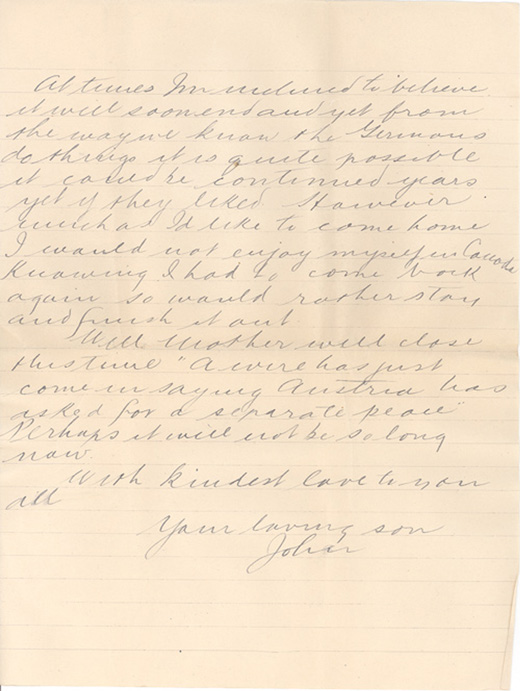 At times I'm inclined to believe
it will soon end and yet from
the way we know the Germans
do things it is quite possible
it could be continued years
yet if they liked. However
much as I'd like to come home
I would not enjoy myself in Canada
Knowing I had to come back
again so would rather stay
and finish it out
Well Mother will close
this time "A wire has just
come in saying Austria has
asked for a separate peace"
Perhaps it will not be so long
now
With kindest love to you
all
Your loving son